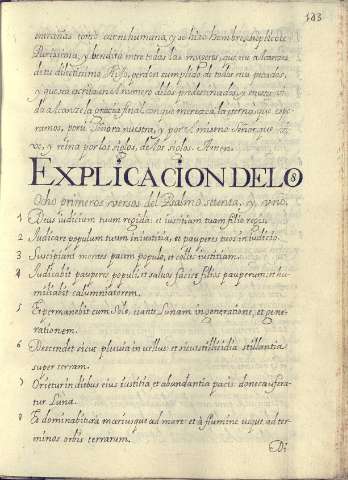 183
entrañas tomò carne humana, y se hizo hombre, suplicote
Purissima, y bendita entre todas las mugeres, que me alcanzes
de tu dilectissimo Hijo, perdon cumplido de todos mis pecados,
y que sea escrito en el numero de los predestinados, y en esta vi-
da alcanze la gracia final con que merezca la eterna, que espe-
ramos, por ti Señora nuestra, y por el mismo Señor, que
vive, y reina por los siglos, de los siglos. Amen.
EXPLICACION DE LOS
Ocho primeros versos del Psalmo setenta, y uno.
1 Deus iudicium tuum regi da: et iustitiam tuam filio regis.
2 Iudicare populum tuum in iustitia, et pauperes tuos in iudicio.
3 Suscipiant montes pacem populo, et colles iustitiam.
4 Iudicabit pauperes populi, et salvos faciet filios pauperum, et hu-
miliabit calumniatorem.
5 Et permanebit cum Sole, et ante Lunam in generatione, et gene-
rationem.
6 Descendet sicut pluvia in vellus et sicut stillicidia stillantia
super terram.
7 Orietur in diebus eius iustitia et abundantia pacis donec aufera-
tur Luna.
8 Et dominabitur a mari usque ad mare et à flumine usque ad ter-
minos orbis terrarum.